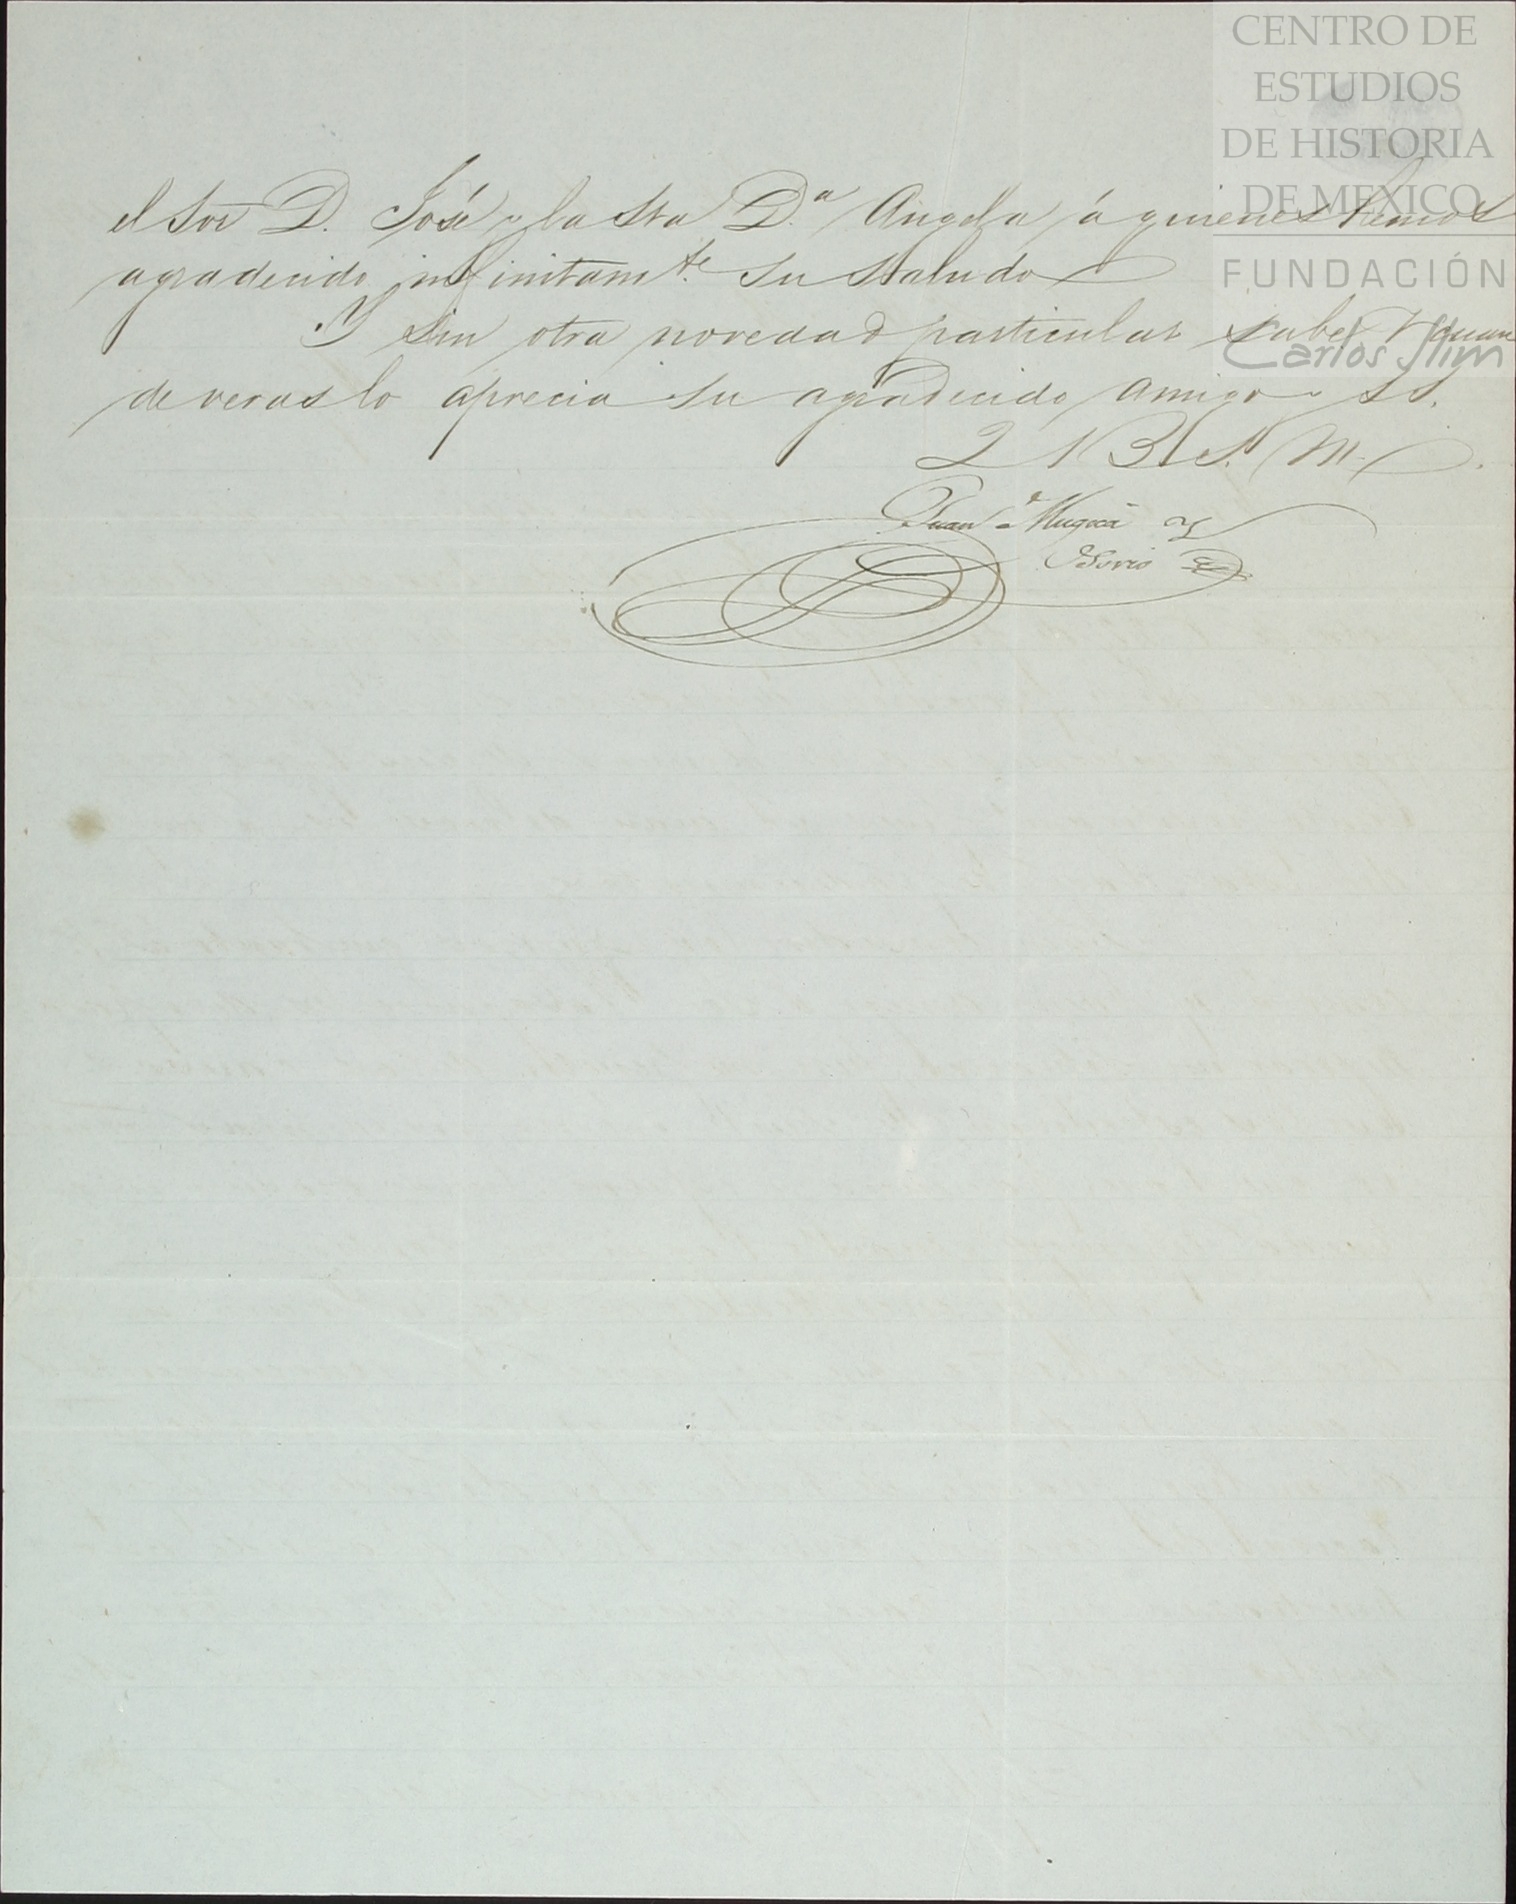 el Sor D. José y la Sra D.ª Angela á quienes hemos
agradecido infinitam.te su saludo
Y sin otra novedad particular sabe V cuan
de veras lo aprecia su agradecido amigo y SS.
Q B S. M.
Juan de Mugica y
Osorio
CENTRO DE
ESTUDIOS
DE HISTORIA
DE MEXICO
FUNDACIÓN
Carlos Slim